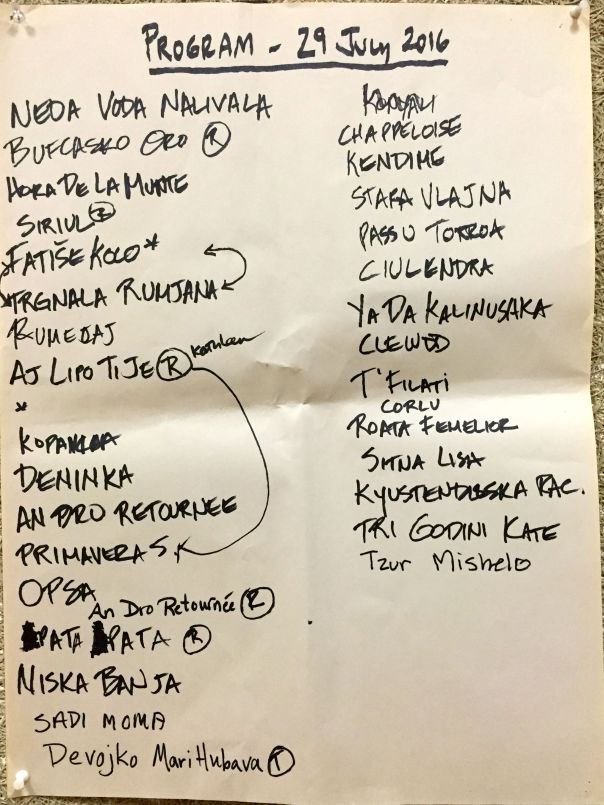 PROGRAM - 29 JULY 2016
NEDA VODA NALIVALA
BUFCASKO ORO R
HORA DE LA MUNTE
SIRIUL R
*FATIŠE KOLO*
*TRGNALA RUMJANA
RUMELAJ
AJ LIPO TI JE R Kathleen
*
KOPANICA
DENINKA
AN DRO RETOURNEE
PRIMAVERA S.
OPSA
An Dro Retournée R
PATA PATA R
NISKA BANJA
SADI MOMA
Devojko Mari Hubava R
CHAPPELOISE
KENDIME
STARA VLAJNA
PASSU TORROA
CIULENDRA
YA DA KALINUSHKA
CLEWOD
T'FILATI
CORLU
ROATA FEMEILOR
SITNA LISA
KYUSTENDILSKA RAC.
TRI GODINI KATE
Tzur Mishelo